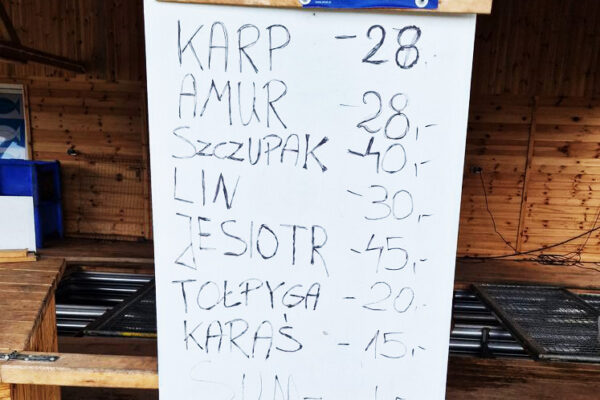 KARP -28
AMUR -28,-
SZCZUPAK -40,-
LIN -30,-
JESIOTR -45,-
TOŁPYGA -20,-
KARAŚ -15,-
SUM -